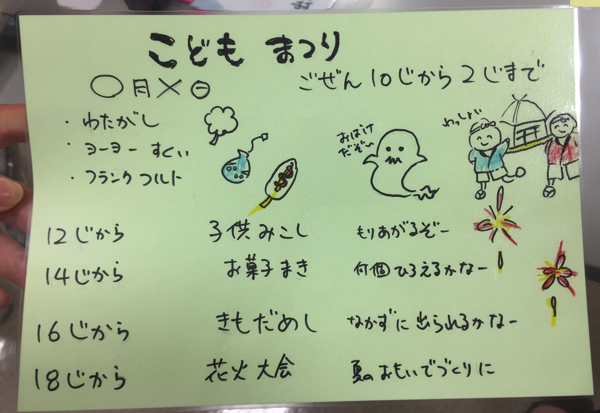 こども まつり
〇月×日 ごぜん10じから2じまで
・わたがし
・ヨーヨーすくい
・フランクフルト
おばけ
だぞ〜
わっしょい
12じから 子供みこし もりあがるぞー
14じから お菓子まき 何個ひろえるかなー
16じから きもだめし なかずに出られるかなー
18じから 花火大会 夏のおもいでづくりに